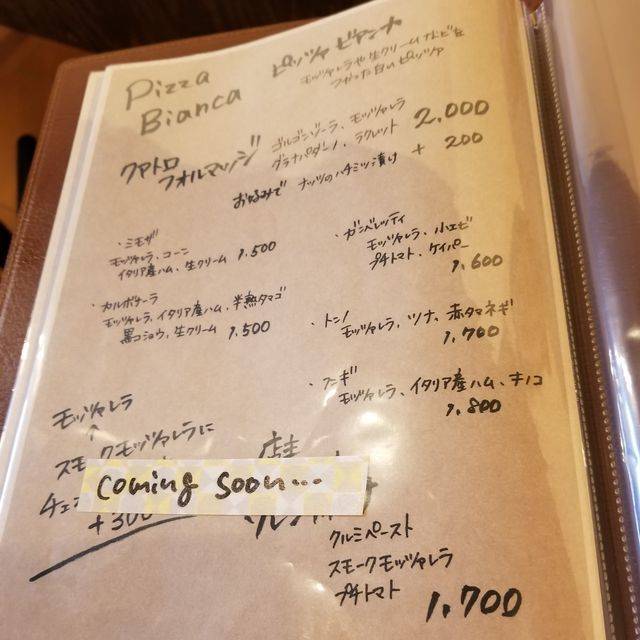 Pizza Bianca
ピッツァ ビアンカ
モッツァレラや生クリームなどを
つかった白いピッツァ
クアトロ
フォルマッジ
ゴルゴンゾーラ、モッツァレラ
グラナパダーノ、ラクレット
2,000
お好みで ナッツのハチミツ漬け + 200
・ミモザ
モッツァレラ、コーン
イタリア産ハム、生クリーム 1,500
・カルボナーラ
モッツァレラ、イタリア産ハム、半熟タマゴ
黒コショウ、生クリーム 1,500
・ガンベレッティ
モッツァレラ、小エビ
プチトマト、ケイパー
1,600
・トンノ
モッツァレラ、ツナ、赤タマネギ
1,700
・フンギ
モッツァレラ、イタリア産ハム、キノコ
1,800
モッツァレラ
↑
スモークモッツァレラに
チェ
+300
coming soon...
クルミペースト
スモークモッツァレラ
プチトマト
1,700